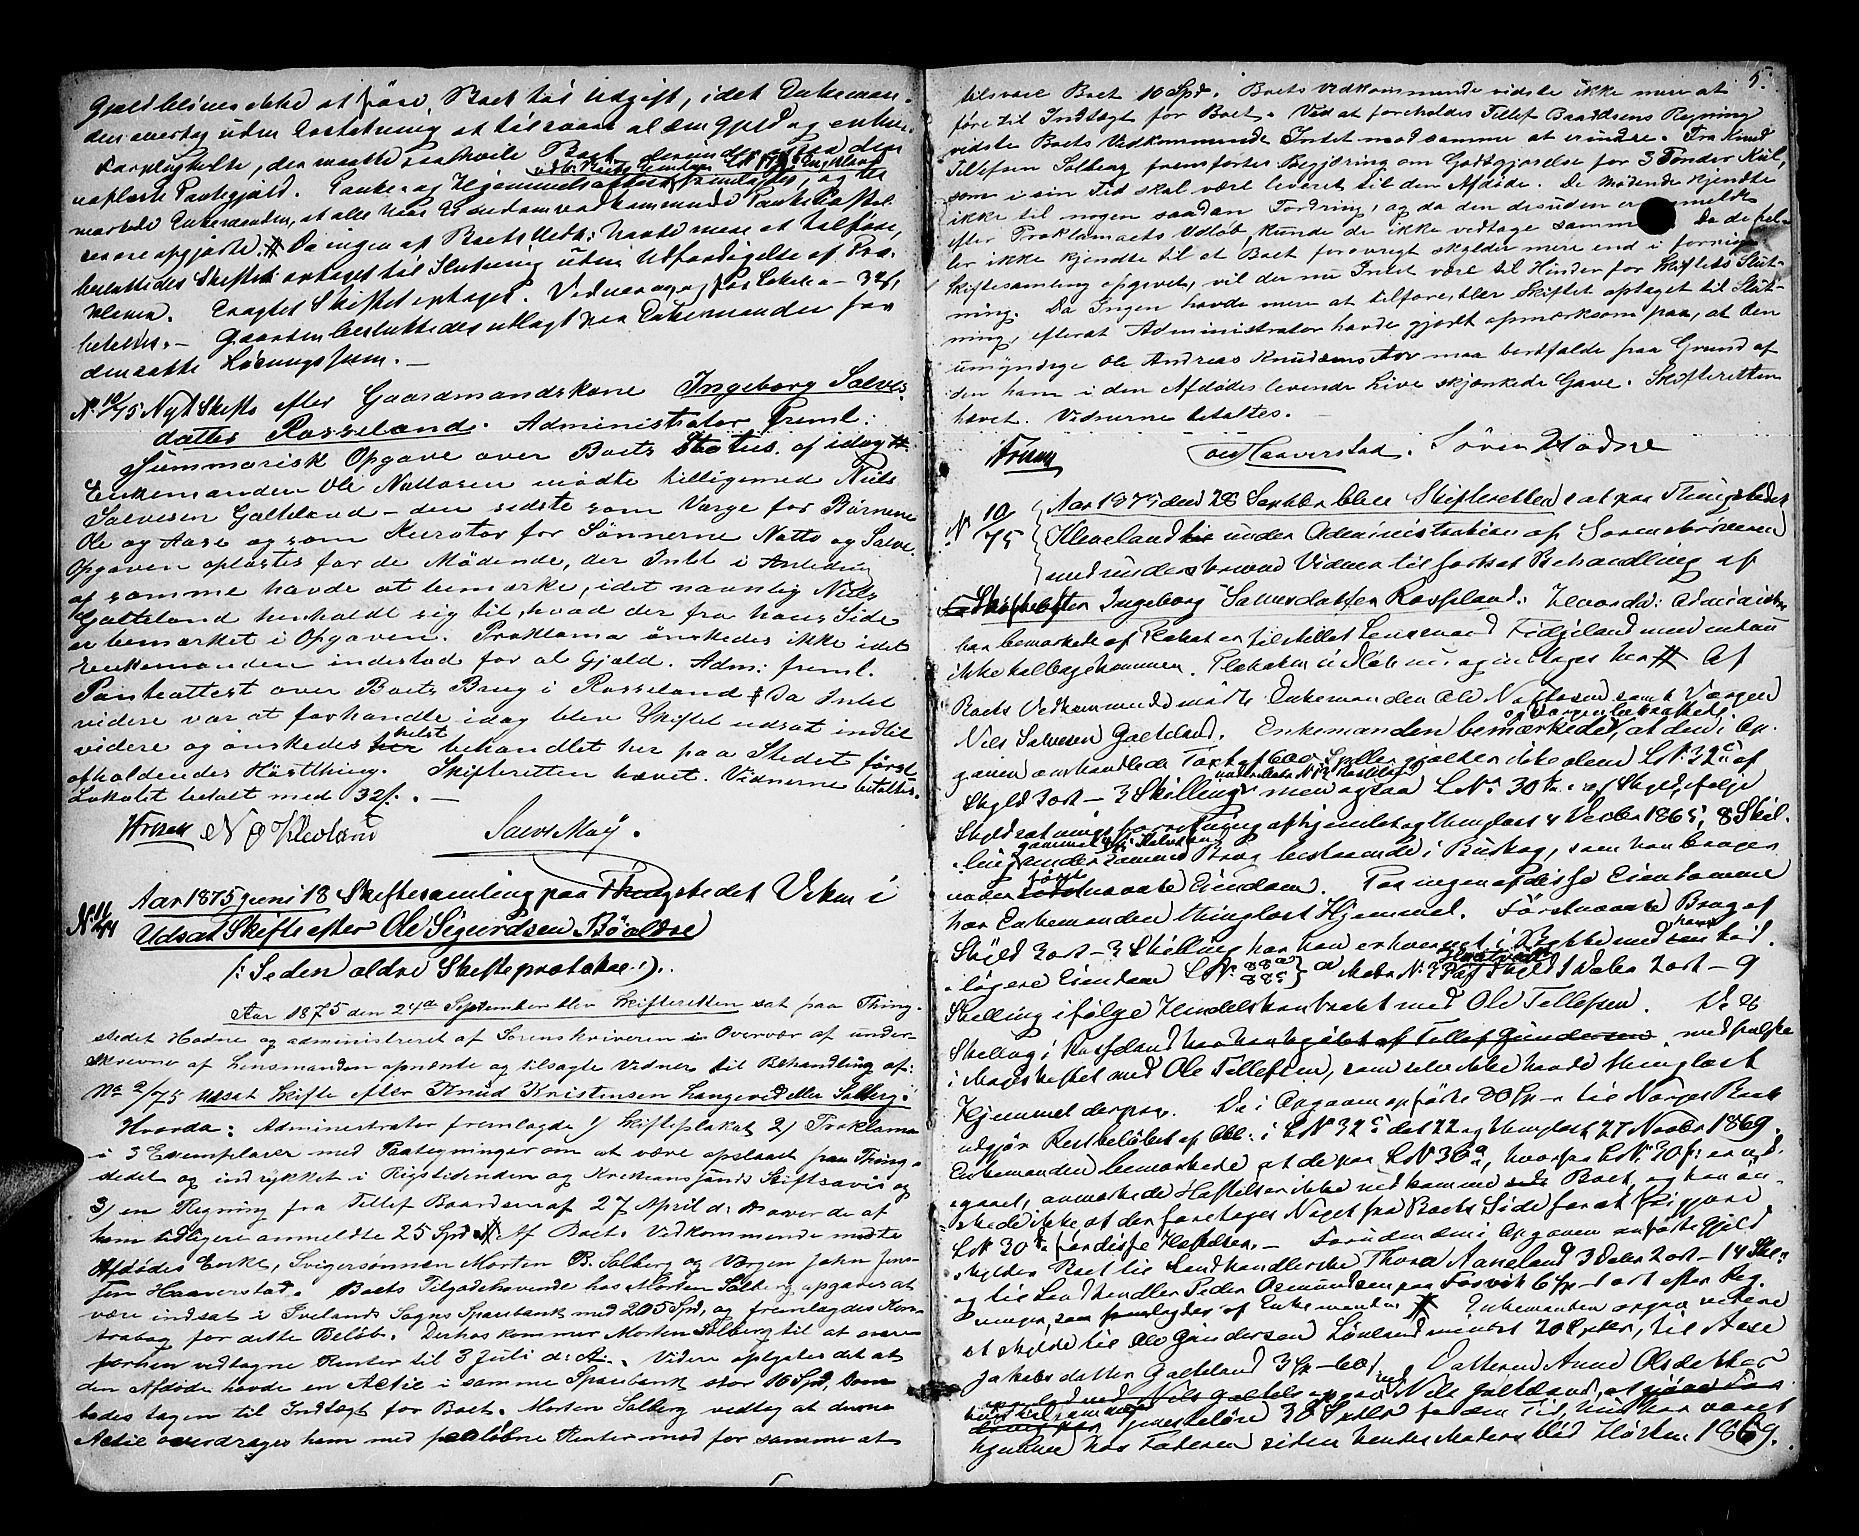 Gjæld blives ikke at føre Boet til Udgift, idet Enkeman-
den overtog uden Erstatning at tilsvare al den Gjeld og enhver
Forpligtelse, der maatte paahvile Boet, derunder ogsaa den
uopløste Pantegjæld. Panke og Hjemmelsattest fremlagdes, og be-
mærkede Enkemanden, at alle
senere opgjorte. # Da ingen af Boets Vedk: havde mere at tilføie,
besluttedes Skiftet optaget til Slutning uden Udfærdigelse af Pro-
klama. Eragtet Skiftet optaget. Vidner og for Lokale - 32 ß
betalte. - Gaarden besluttedes udlagt paa Enkemanden for
den satte Løsningssum. -
No 10/75 Nyt Skifte efter Gaardmandskone Ingeborg Salves-
datter Rosseland. Administrator freml:
Summarisk Opgave over Boets Status af idag #
Enkemanden Ole Nattosen mødte tilligemed Niels
Salvesen Galteland - den sidste som Værge for Børnene
Ole og Aase og som Kurator for Sønnerne Natto og Salve.
Opgaven oplæstes for de Mødende, der Intet i Anledning
af samme havde at bemærke, idet navnlig Niels
Galteland henholdt sig til, hvad der fra hans Side
er bemærket i Opgaven. Proklama ønskedes ikke idet
Enkemanden indestod for al Gjæld. Adm: freml.
Panteattest over Boets Brug i Rosseland # Da Intet
videre var at forhandle idag blev Skiftet udsat indtil
videre og ønskedes helst behandlet her paa Stedet først-
afholdendes Høstthing. Skifteretten hævet. Vidnerne betaltes.
Lokalet betalt med 32 ß. -
N O Klevland Salve Moÿ.
No 11/74 Aar 1875 Juni 18 Skiftesamling paa Thingstedet Viken i
Udsat Skifte efter Ole Sigurdsen Bøaldre
(: Se den ældre Skifteprotokol :).
Aar 1875 den 24de September blev Skifteretten sat paa Thing-
stedet Hodne og administreret af Sorenskriveren i Overvær af under-
skrevne af Lensmanden opnævnte og tilsagte Vidner til Behandling af:
No 2/75 Udsat Skifte efter Knud Kristensen Langeved eller Solberg:
Hvorda: Administrator fremlagde 1) Skifteplakat 2) Proklama
i 3 Exemplarer med Paategninger om at være opslaaet paa Thing-
stedet og indrykket i Rigstidenden og Kristianssands Stiftsavis og
3) en Regning fra Tellef Baardsen af 27 April d: A over de af
ham tidligere anmeldte 25 Spd. # Af Boets Vedkommende mødte
Afdødes Enke, Svigersønnen Morten B. Solberg og Værgen John Jens-
sen Haaverstad. Boets Tilgodehavende hos Morten Solberg opgaves at
være indsat i Ivelands Sogns Sparebank med 205 Spd, og fremlagdes Kon-
trabog for dette Beløb. Derhos kommer Morten Solberg til at svare
forhen vedtagne Renter til 3 Juli d: A:. Videre oplystes det at
den Afdøde havde en Actie i samme Sparebank stor 10 Spd, som
bades tagen til Indtægt for Boet. Morten Solberg vedtog at denne
Actie overdrages ham med paaløbne Renter mod for samme at
5.
tilsvare Boet 10 Spd. Boets Vedkommende vidste ikke mere at
føre til Indtægt for Boet. Ved at foreholdes Tellef Baardsens Regning
vidste Boets Vedkommende Intet mod samme at erindre. Fra Knud
Tellefsen Solberg fremførtes Begjæring om Godtgjørelse for 3 Tønder Kul,
som i sin Tid skal være leveret til den Afdøde. De Mødende kjendte
ikke til nogen saadan Fordring, og da den desuden er anmeldt
efter Proklamaets Udløb, kunde de ikke vedtage samme. Da de hel-
ler ikke kjendte til at Boet forøvrigt skylder mere end i forrige
Skiftesamling opgivet, vil der nu Intet være til Hinder for Skiftets Slut-
ning. Da Ingen havde mere at tilføre, blev Skiftet optaget til Slut-
ning, efterat Administrator havde gjort opmærksom paa, at den
umyndige Ole Andreas Knudsens Arv maa bortfalde paa Grund af
den ham i den Afdødes levende Live skjænkede Gave. Skifteretten
hævet. Vidnerne betaltes. -
Haaverstad. Søren Hodne
No 10/75 Aar 1875 den 28 Septbr blev Skifteretten sat paa Thingstedet
Kleveland under Administration af Sorenskriveren
med underskrevne Vidner til fortsat Behandling af
Skiftet efter Ingeborg Salvesdatter Rosseland: Hvorda: Administra-
tor bemærkede af Plakaten tilstillet Lensmand Fidjeland med endnu
ikke tilbagekommen. Plakaten indløb nu og indtages her # Af
Boets Vedkommende mødte Enkemanden Ole Nattosen samt Værgen
Nils Salvesen Galteland. Enkemanden bemærkede, at den i Op-
gaven omhandlede Taxt af 600 Spdler gjælder ikke alene LNo 32c af
Skyld 3 ort - 3 Skilling men ogsaa LNo 30 af Skyld, ifølge
Skyldsætningsforretning afhjemlet og thinglæst 4 Decbr 1865, 8 Skil-
ling under samme Brug bestaaende i Buskog, som han bruger
under førstnævnte Eiendom. Paa ingen af disse Eiendomme
har Enkemanden thinglæst Hjemmel. Førstnævnte Brug af
Skyld 3 ort - 3 Skilling har han erhvervet i Bytte med hans tid-
ligere Eiendom LNo 88a 88c Skyld 1 Daler 2 ort - 9
Skilling ifølge Handelskontrakt med Ole Tellefsen. De 8
Skilling i Rosseland har han kjøbt af Tellef Gundersen
i Mageskiftet med Ole Tellefsen, som selv ikke havde thinglæst
Hjemmel derpaa. De i Opgaven opførte 20 Sp - til Norges Bank
udgjør Restbeløbet af Obl: i LNo 32c det 22 og thinglæst 27 Novbr 1869.
Enkemanden bemærkede at de paa LNo 30a, hvorfra LNo 30f er ud-
gaaet, anmærkede Hæftelser ikke vedkomme Boet, og han øn-
skede ikke at der foretages Noget fra Boets Side for at frigjøre
LNo 30 for disse Hæftelser. - Foruden den i Opgaven anførte Gjæld
skylder Boet til Landhandlerske Thora Aaneland 3 Daler 2 ort - 14 Skil:
og til Landhandler Peder Osmundsen paa Fosvik 6 Sp - 1 ort efter Reg-
ninger, som fremlagdes af Enkemanden # Enkemanden opgav videre
at skylde til Ole Gundersen Løvland 20 Spdlr, til Aase
Jakobsdatter Galteland 3 Sp - 60 ß. Datteren Anne Olsdatter
Nils Galteland,
Tjenesteløn 30 Spdlr for den Tid, hun har været
hjemme hos Faderen siden hendes Moders Død Høsten 1869.